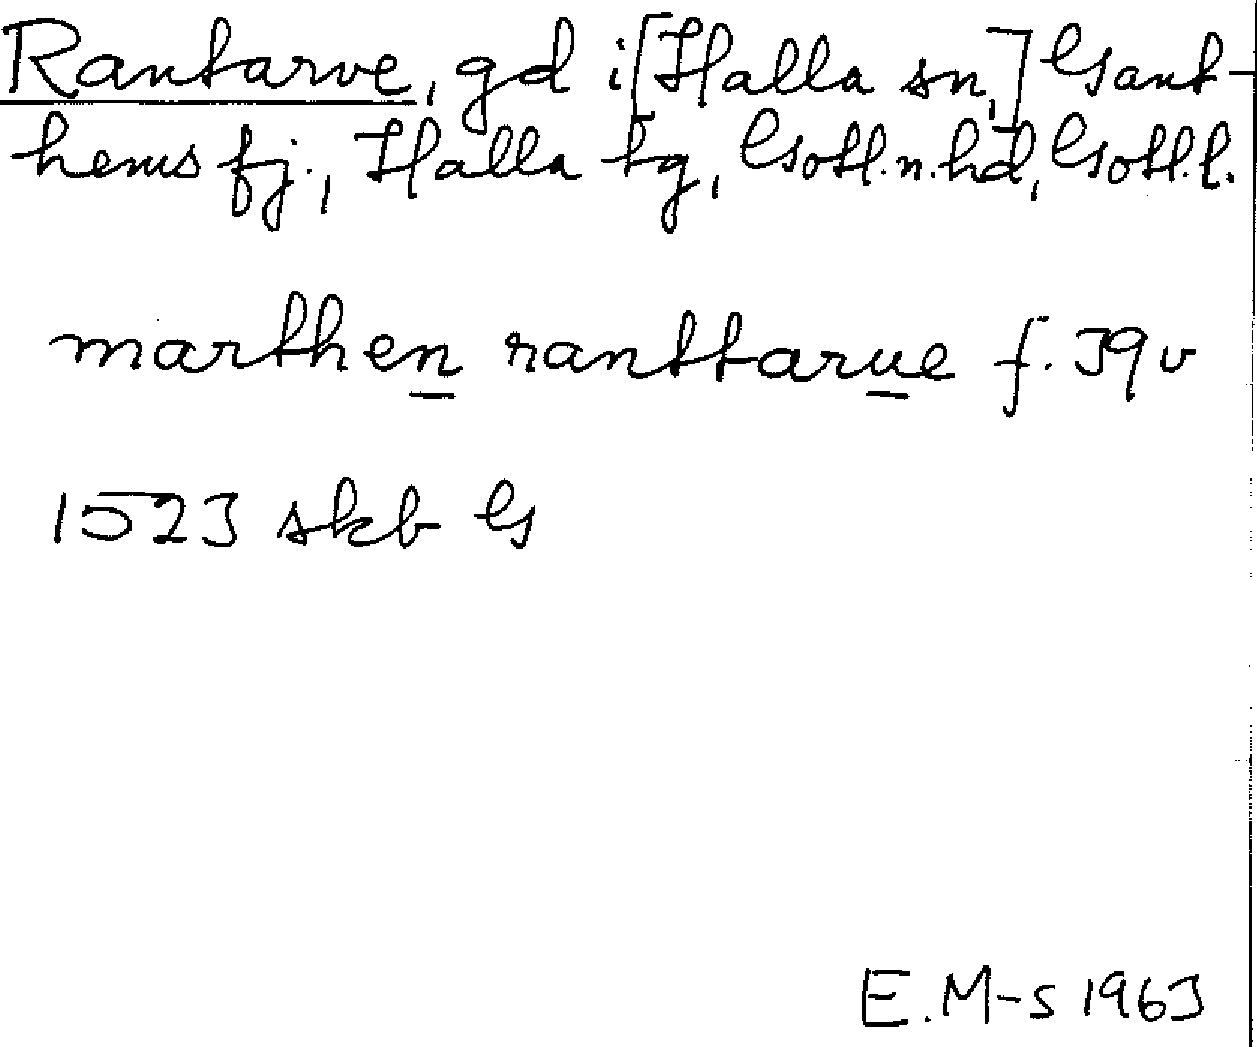 Rantarve, gd i [Halla sn,] Gant-
hems fj., Halla tg, Gotl. n. hd, Gotl. l.
marthen ranttarue f. 39 v
1523 skb G
E. M-s 1963